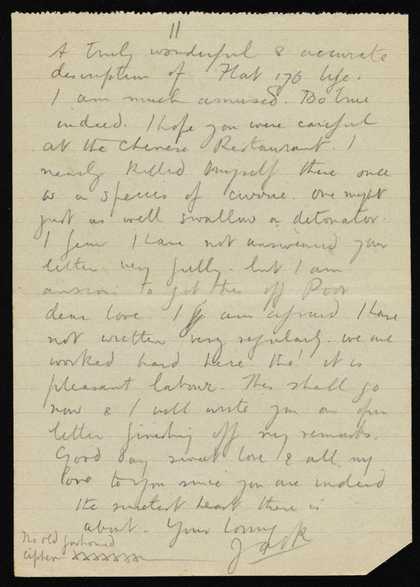 11
A truly wonderful & accurate
description of Flat 176 life.
I am much amused. So true
indeed. I hope you were careful
at the Chinese Restaurant. I
nearly killed myself there once
w a species of . One might
just as well swallow a detonator.
I fear I have not answered your
letter very fully. but I am
anxious to get this off Poor
dear love. I am afraid I have
not written very regularly. we are
worked hard here tho' it is
pleasant labour. This shall go
now & I will write you an open
letter finishing off my remarks.
Good day sweet love & all my
love to you since you are indeed
the sweetest heart there is
about. Your loving
Jack
No old fashioned
cipher xxxxxxxx